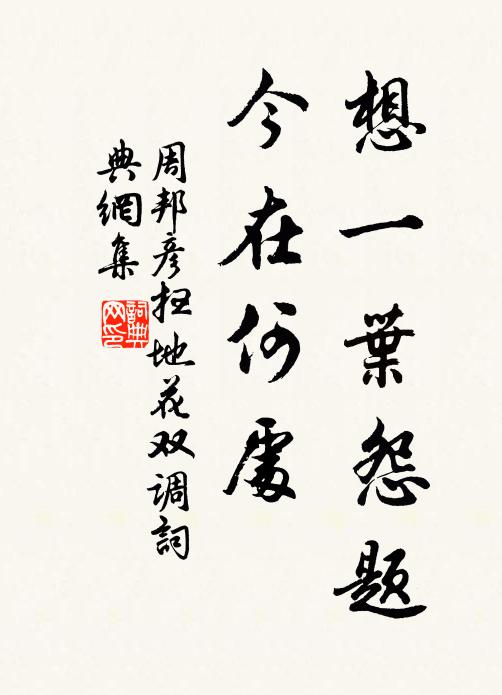 想一葉怨题
今在何處
周邦彦扫地花双调詞
典網集
詞典網印